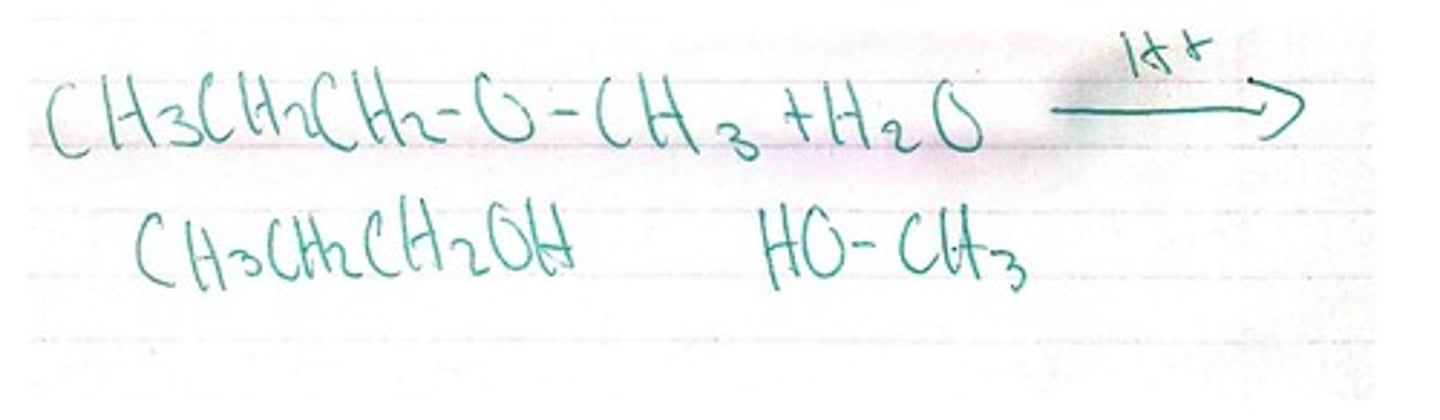 H+
CH3CH2CH2-O-CH3+H2O →
CH3CH2CH2OH HO-CH3